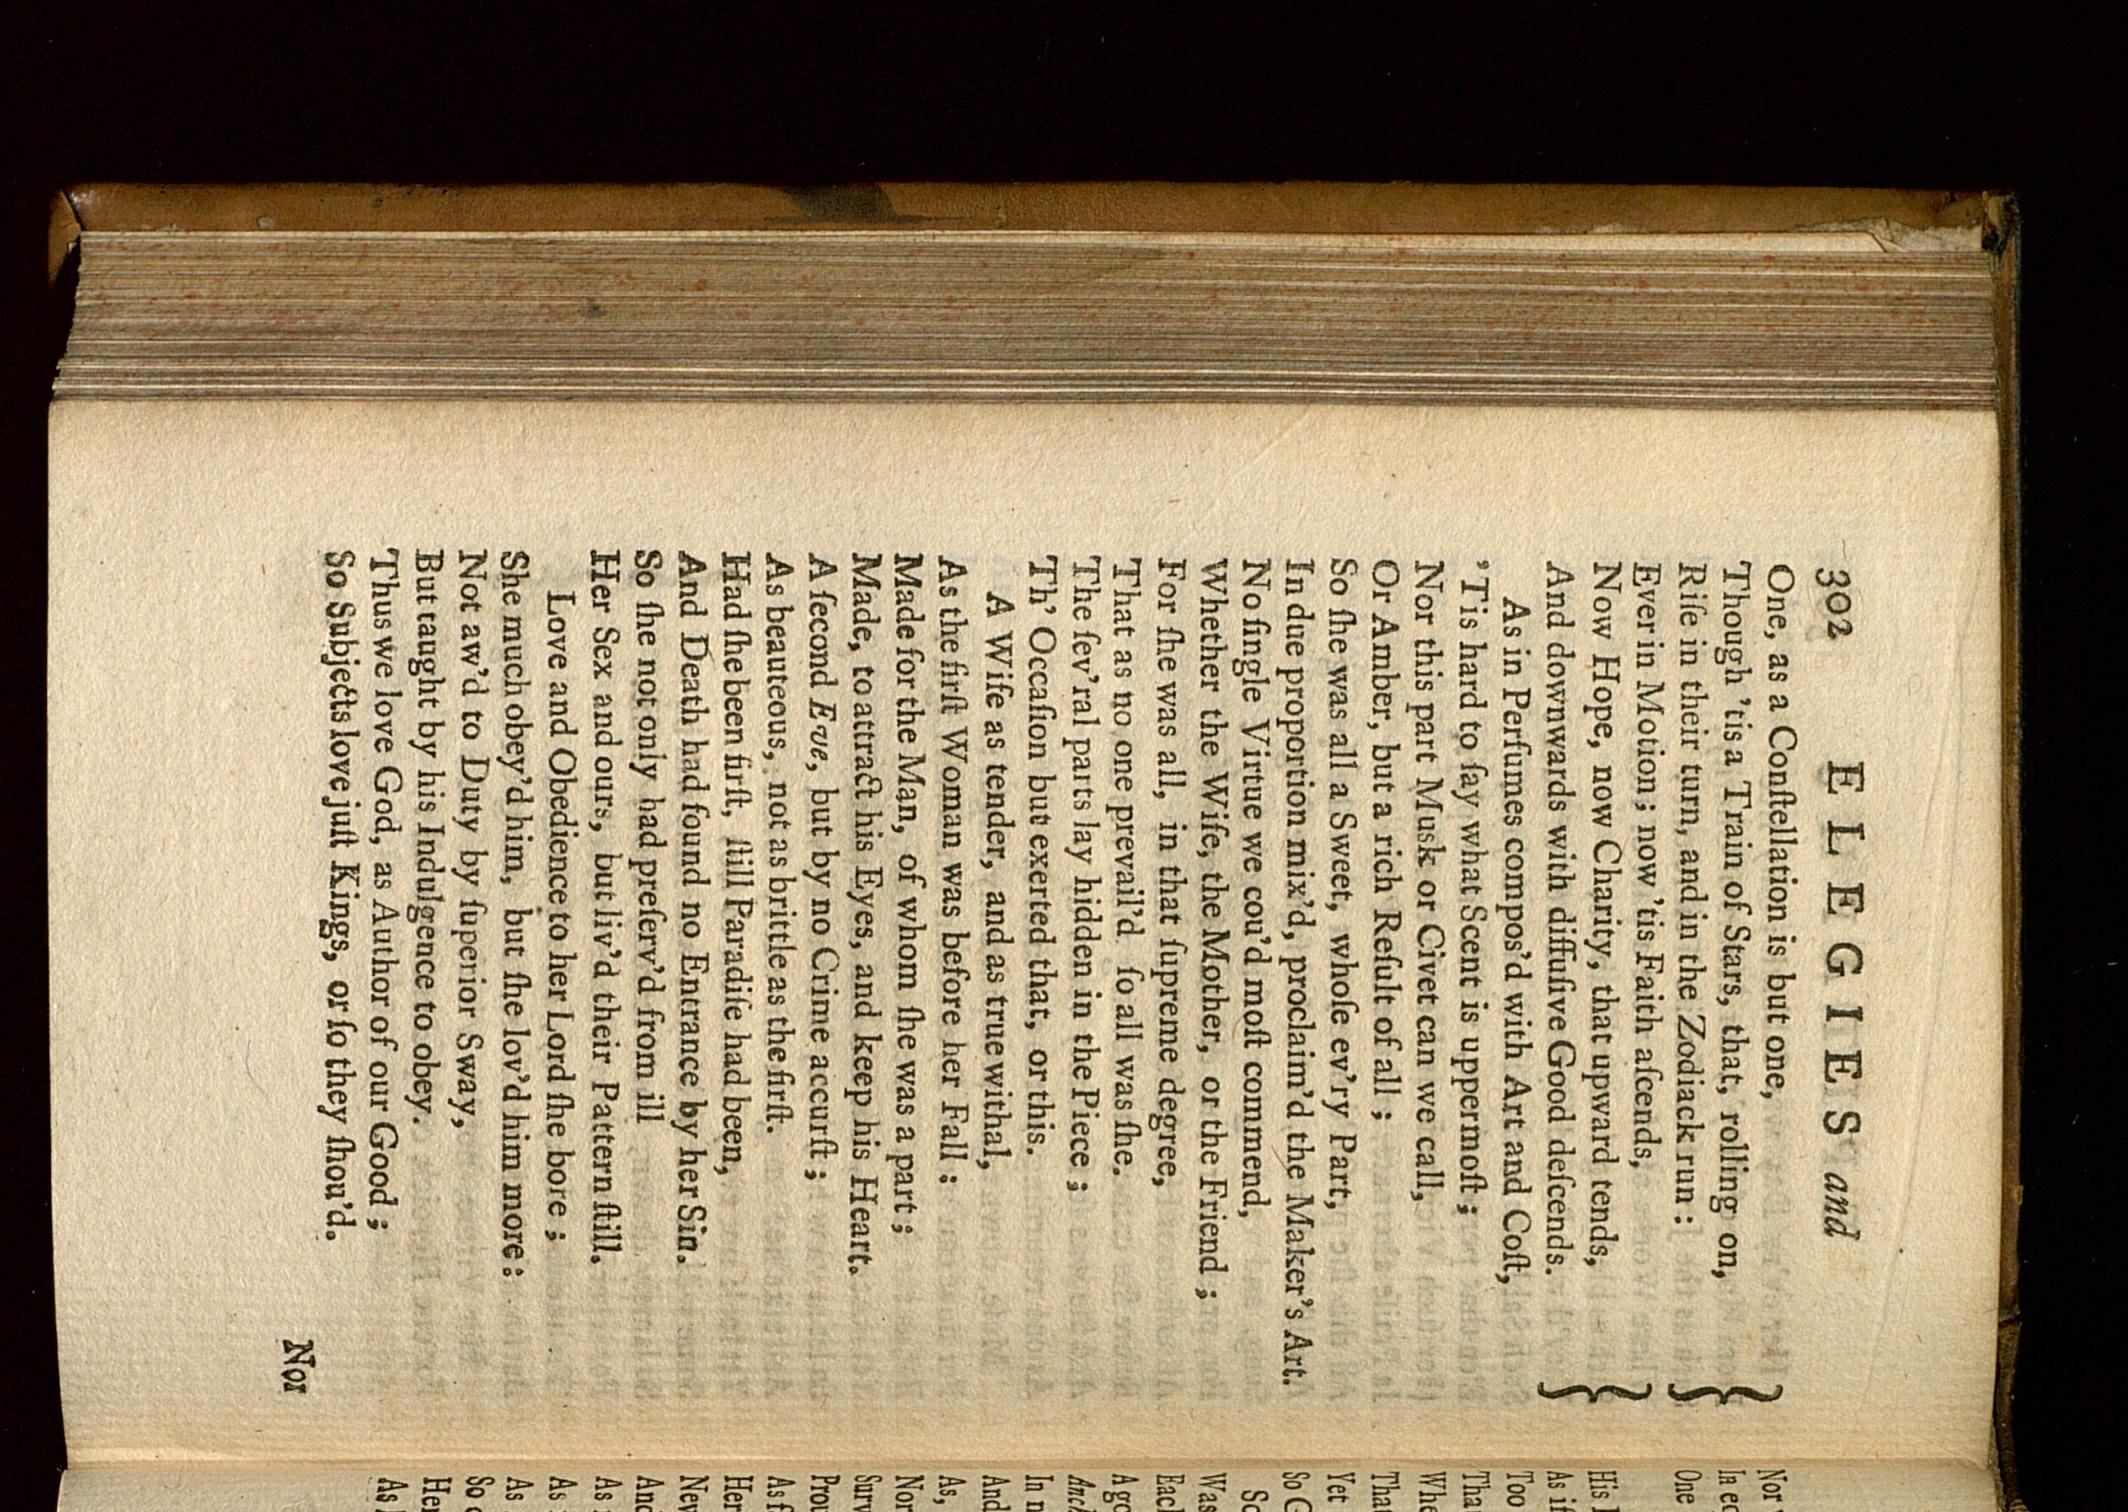 302 ELEGIES and
One, as a Conſtellation is but one,
Though 'tis a Train of Stars, that, rolling on,
Riſe in their turn, and in the Zodiack run:
Ever in Motion; now 'tis Faith aſcends,
Now Hope, now Charity, that upward tends,
And downwards with diffuſive Good deſcends.
As in Perfumes compos'd with Art and Coſt,
'Tis hard to ſay what Scent is uppermoſt;
Nor this part Musk or Civet can we call,
Or Amber, but a rich Reſult of all;
So ſhe was all a Sweet, whoſe ev'ry Part,
In due proportion mix'd, proclaim'd the Maker's Art.
No ſingle Virtue we cou'd moſt commend,
Whether the Wife, the Mother, or the Friend;
For ſhe was all, in that ſupreme degree,
That as no one prevail'd, ſo all was ſhe.
The ſev'ral parts lay hidden in the Piece;
Th' Occaſion but exerted that, or this.
A Wife as tender, and as true withal,
As the firſt Woman was before her Fall:
Made for the Man, of whom ſhe was a part;
Made, to attract his Eyes, and keep his Heart.
A ſecond Eve, but by no Crime accurſt;
As beauteous, not as brittle as the firſt.
Had ſhe been firſt, ſtill Paradiſe had been,
And Death had found no Entrance by her Sin.
So ſhe not only had preſerv'd from ill
Her Sex and ours, but liv'd their Pattern ſtill.
Love and Obedience to her Lord ſhe bore;
She much obey'd him, but ſhe lov'd him more:
Not aw'd to Duty by ſuperior Sway,
But taught by his Indulgence to obey.
Thus we love God, as Author of our Good;
So Subjects love juſt Kings, or ſo they ſhou'd.
Nor
Nor
In
One
His
As if
Too
Tha
Whe
Tha
Yet
So
So
Was
Each
Ago
And
In n
And
As,
Nor
Surv
Prov
As f
Her
Nev
And
As
As
As
So
Her
As